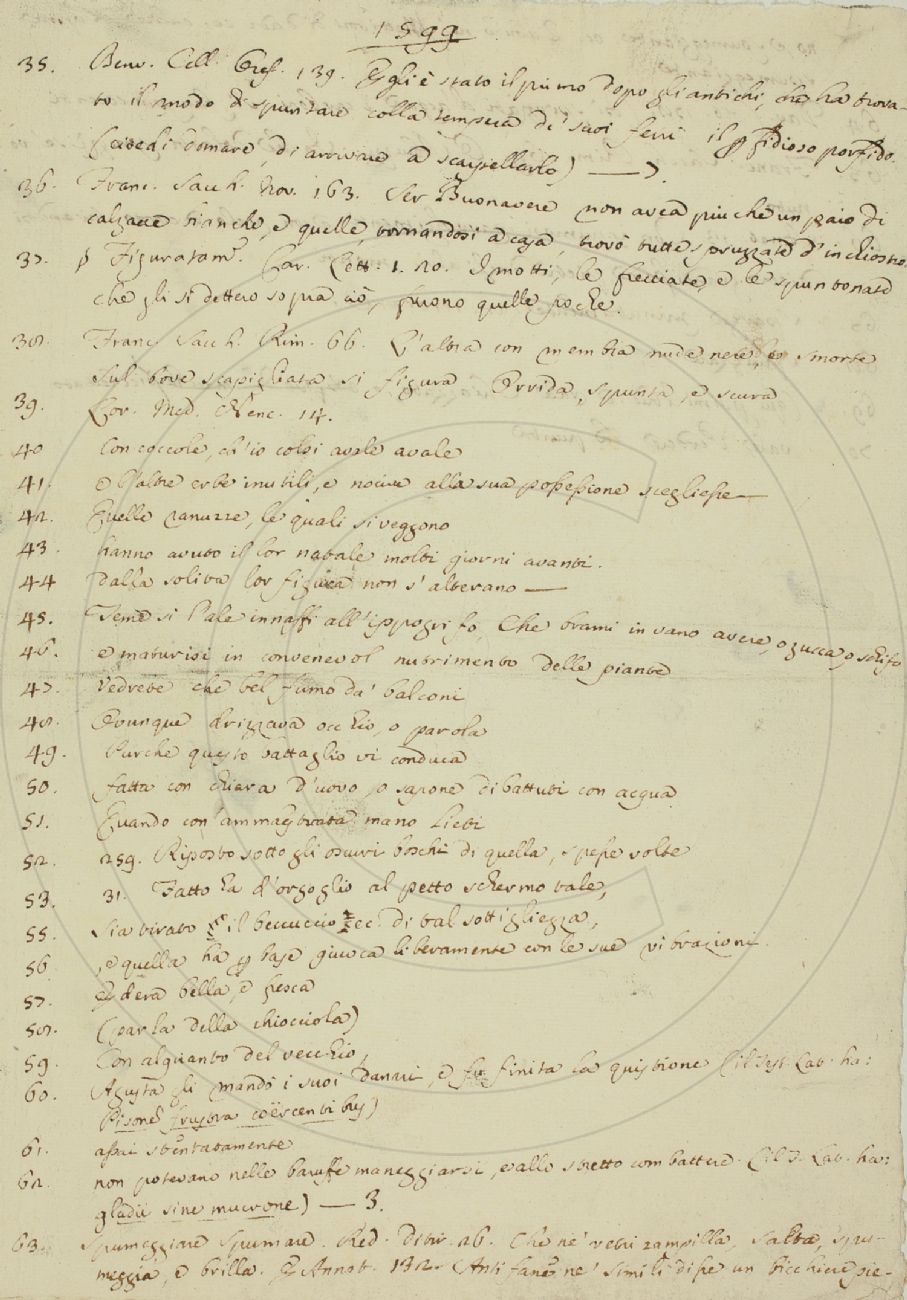 1599
35. Benv. Cell. Oref. 139. Egli è stato il primo dopo gli antichi, che ha trova-
to il modo di spuntare colla tempera de' suoi ferri il pfidioso porfido.
(cioè di domare, di arrivare a scarpellarlo) — 7.
36. Franc. Sacch. Nov. 163. Ser Buonavere non avea più che un paio di
calzacce bianche, e quelle, tornandosi a casa, trovò tutte spruzzate d'inchiostro.
37. p Figuratam. Car. Lett. 1. 20. I motti, le frecciate, e le spuntonate
che gli si dettero sopra ciò, furono quelle poche.
38. Franc. Sacch. Rim. 66. L'altra con membra nude nere, smorte
Sul bove scapigliata si figura Orrida, spunta, e scura
39. Lor. Med. Nenc. 14.
40 Con coccole, ch'io colsi avale avale
41. e l'altre erbe inutili, e nocive alla sua possessione scegliesse —
42. Quelle zanuzze, le quali si veggono
43. hanno avuto il lor natale molti giorni avanti.
44 Dalla solita lor figura non s'alterano —
45. Teme si l'ale innaffi all'ippogrifo, Che brami in vano avere, o zucca, o schifo
46. e maturisi in convenevol nutrimento delle piante
47. Vedrete che bel fumo da' balconi
48. Ovunque drizzava occhio, o parola
49. Purche questo battaglio vi conduca
50. fatta con chiara d'uovo, o sapone dibattuti con acqua
51. Quando con ammaestrata mano Licti
52. 259. Riposto sotto gli oscuri boschi di quella, spesse volte
53. 31. Fatto ha d'orgoglio al petto schermo tale,
55. Sia tirato il beccuccio ec. di tal sottigliezza,
56 , e quella ha p base giuoca liberamente con le sue vibrazioni.
57. Edera bella, e fresca
58. (parla della chiocciola)
59. Con alquanto del vecchio,
60. Agusta gli mandò i suoi danari, e fu finita la quistione (il Test. Lat. ha:
Pisone frustra coërcentibus)
61. assai stentatamente
62. non potevano nelle baruffe maneggiarsi, e allo stretto combattere. (il T. Lat. ha:
gladii sine mucrone) — 3.
63. Spumeggiare Spumare. Red. Ditir. 26. Che ne' vetri zampilla, Salta, spu-
meggia, e brilla. E Annot. 132. Antifane ne' Simili disse un bicchiere pie-